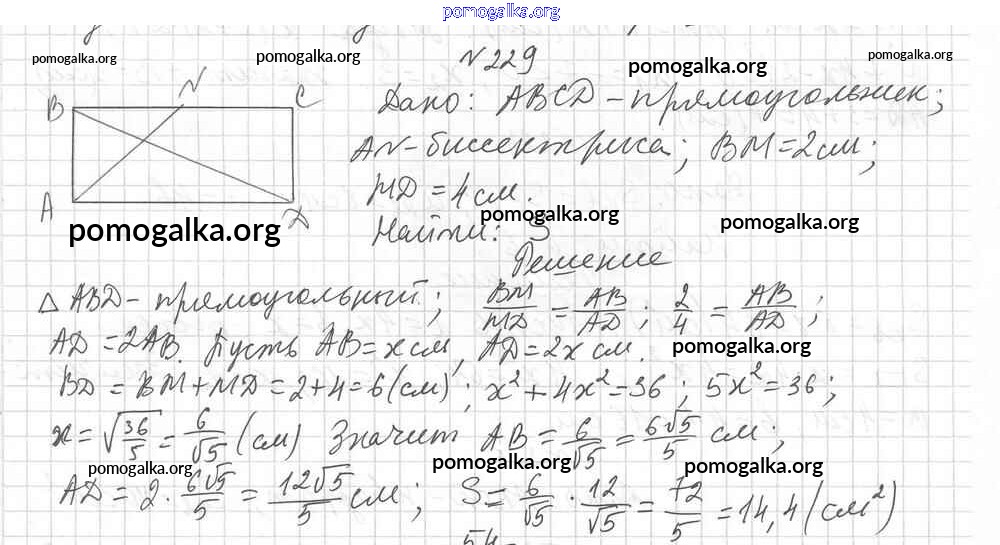 pomogalka.org
pomogalka.org pomogalka.org pomogalka.org pomogalka.org
N 229
B N C
A D
Дано: ABCD - прямоугольник;
AN - биссектриса; BM = 2 см;
MD = 4 см.
pomogalka.org pomogalka.org pomogalka.org
Найти: S
Решение
△ ABD - прямоугольный; BM/MD = AB/AD; 2/4 = AB/AD;
AD = 2AB. Пусть AB = x см, AD = 2x см.
pomogalka.org
BD = BM + MD = 2 + 4 = 6 (см); x² + 4x² = 36; 5x² = 36;
x = √36/5 = 6/√5 (см) Значит AB = 6/√5 = 6√5/5 см;
pomogalka.org pomogalka.org pomogalka.org
AD = 2 · 6√5/5 = 12√5/5 см; S = 6/√5 · 12/√5 = 72/5 = 14,4 (см²)